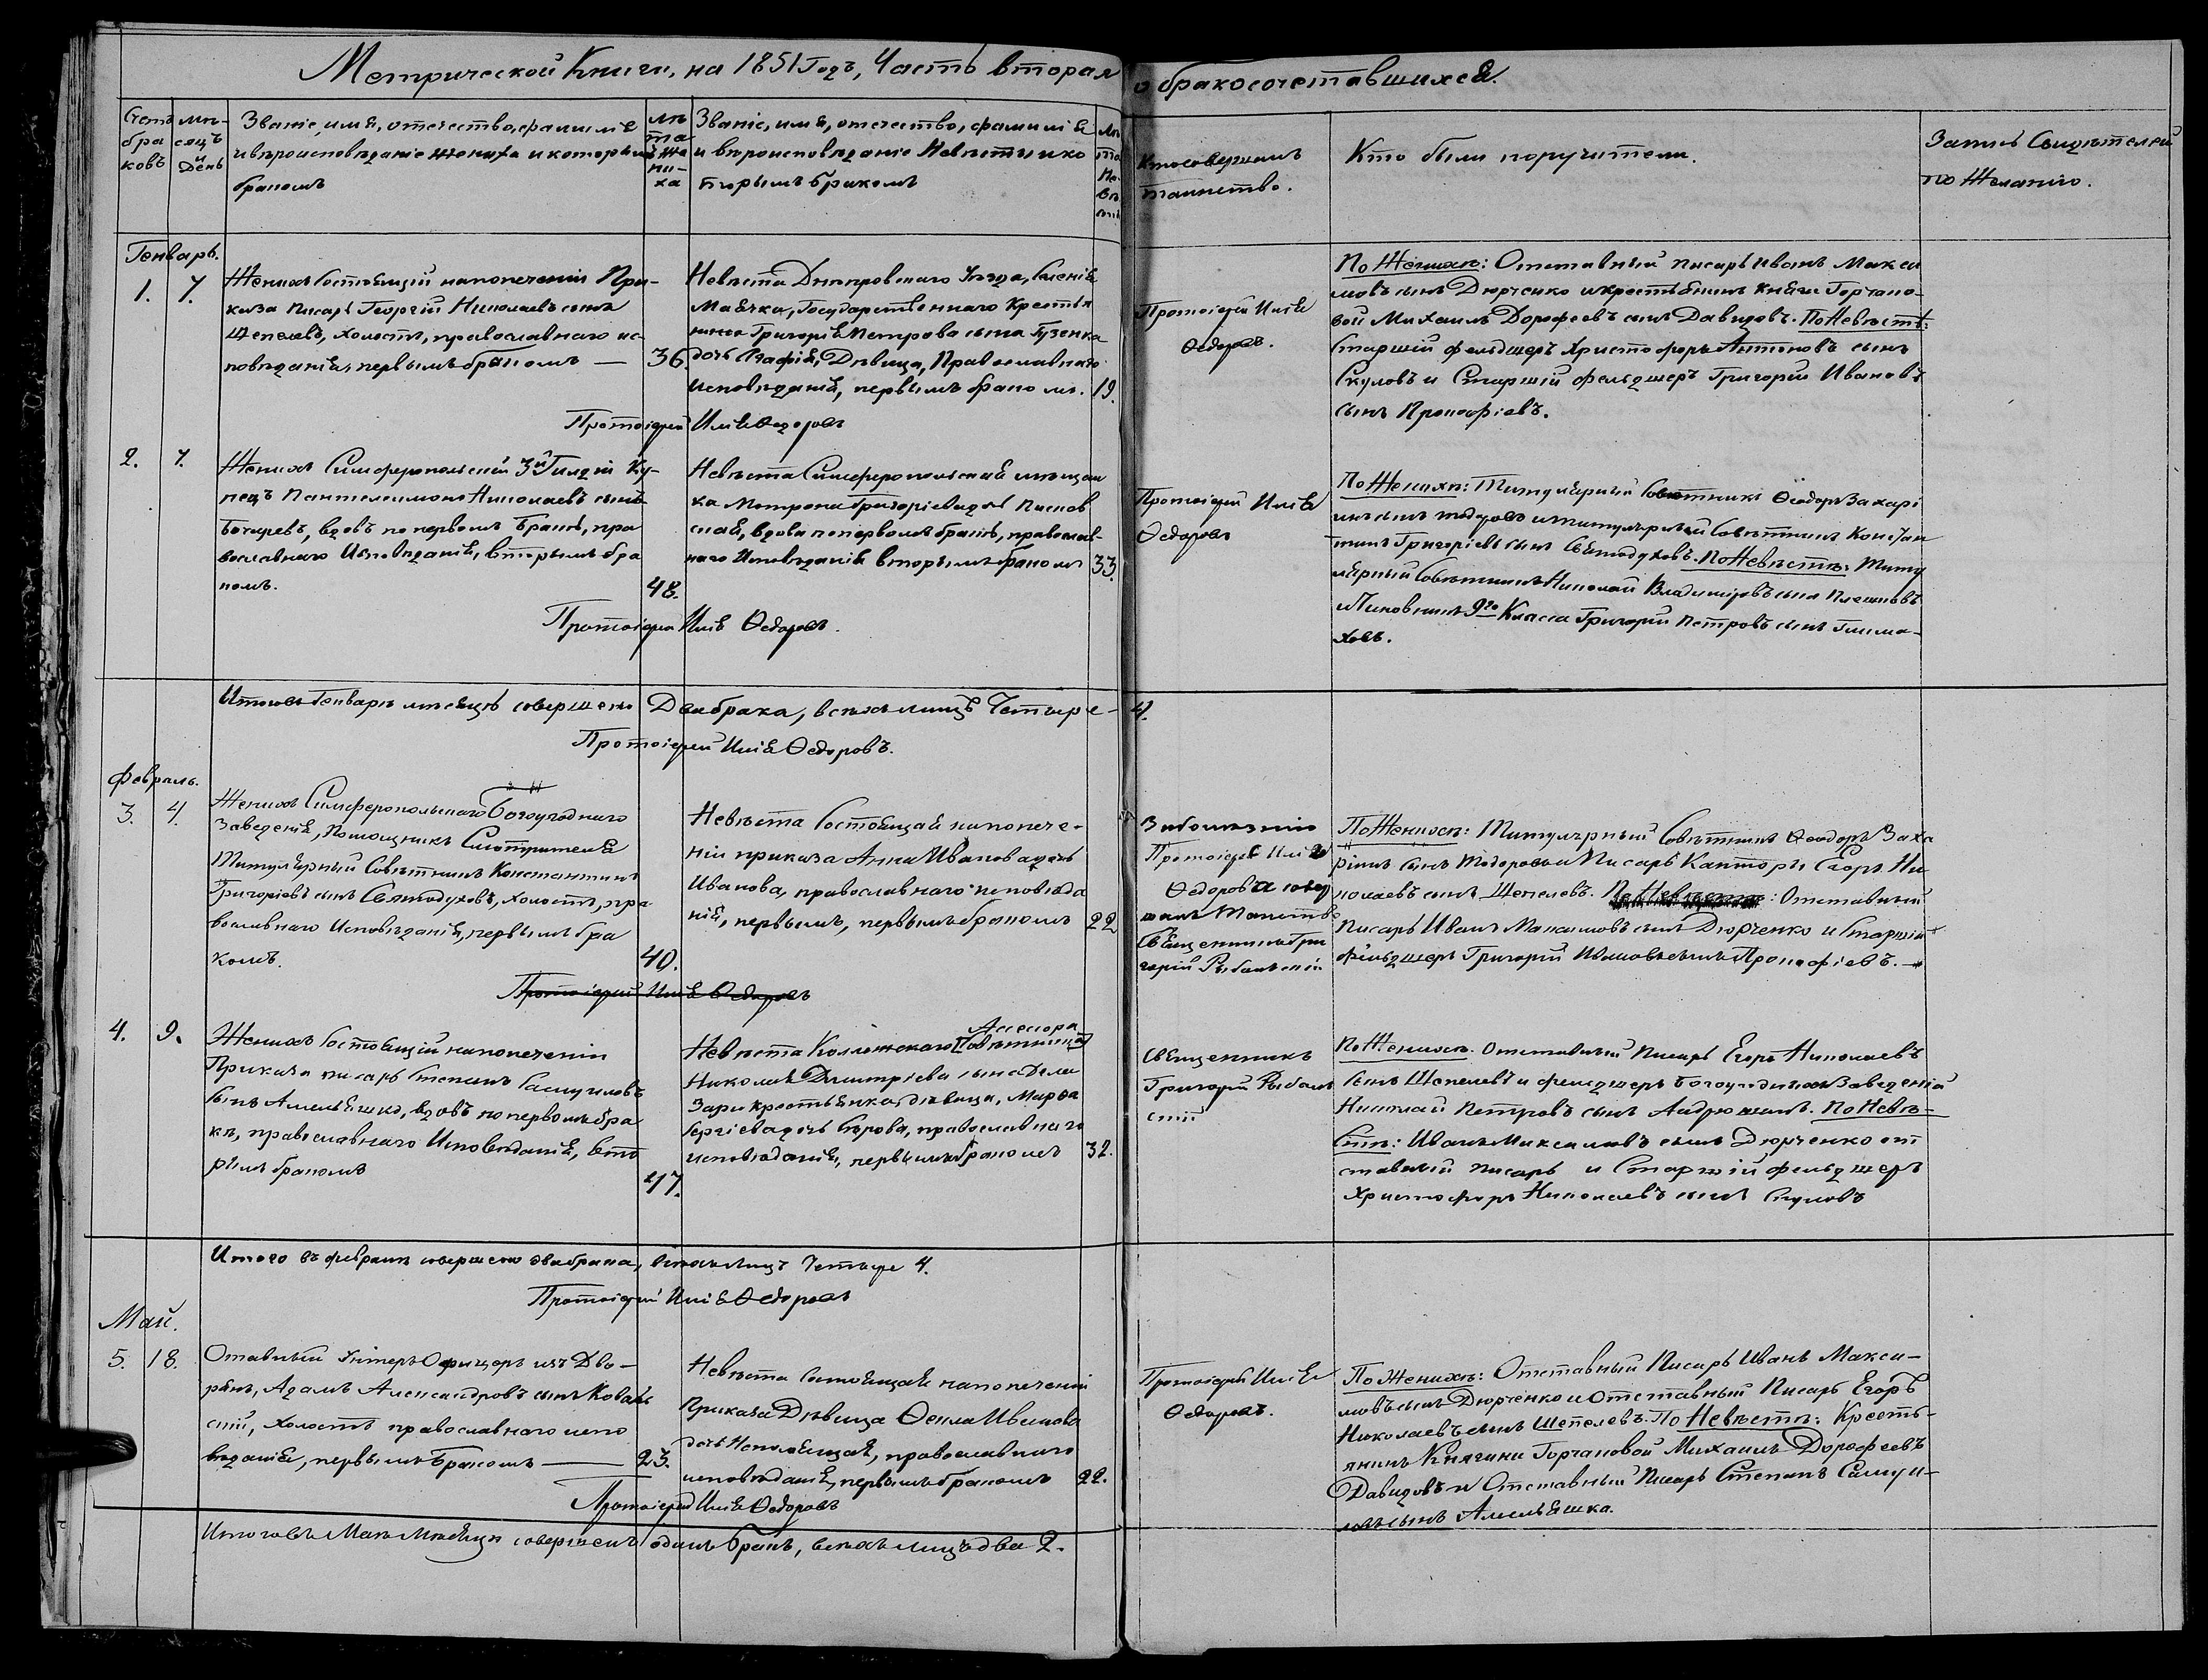 Метрической Книги, на 1851 Годъ, Часть вторая о бракосочетавшихся.
Счетъ
бра
ковъ
мѣ-
сяцъ
и
День
Званіе, имя, отечество, фамиліе
и вѣроисповѣданіе жениха и которымъ
бракомъ
лѣ
та
же
ни-
ха
Званіе, имя, отечество, фамиліе
и вѣроисповѣданіе Невѣсты и ко
торымъ бракомъ
лѣ
та
Не
вѣ
сты
Кто совершалъ
таинство.
Кто были поручители.
Запись Свидѣтелей
по Желанію.
Генварь.
1. 7.
Женихъ Состоящій на попеченіи При-
каза Писарь Георгій Николаевъ сынъ
Щепелевъ, холостъ, православнаго ис-
повѣданія, первымъ бракомъ — 36.
Невѣста Днѣпровскаго Уѣзда, Селенія
Маячка, Государственнаго Крестья
нина Григорія Петрова сына Гузенка
дочь Агафія, Дѣвица, Православнаго
исповѣданія, первымъ бракомъ. 19.
Протоіерей Илія Ѳедоровъ
Протоіерей Илія
Ѳедоровъ.
По Женихѣ: Отставный писарь Иванъ Макси
мовъ сынъ Дюрченко и крестьянинъ Княги Горчако-
вой Михаилъ Дорофеевъ сынъ Давидовъ. По Невѣстѣ:
Старшій фельдшеръ Христофоръ Антоновъ сынъ
Скуловъ и Старшій фельдшеръ Григорій Ивановъ
сынъ Прокофіевъ.
2. 7.
Женихъ Симферопольскій 3й Гилдіи Ку-
пецъ Пантелеимонъ Николаевъ сынъ
Бочаревъ, вдовъ по первомъ бракѣ, пра
вославнаго Исповѣданія, вторымъ бра
комъ. 48.
Невѣста Симферопольская мѣщан
ка Матрона Григоріева дочь
вдова по первомъ бракѣ, православ-
наго Исповѣданія вторымъ бракомъ 33.
Протоіерей Илія Ѳедоровъ.
Протоіерей Илія
Ѳедоровъ
По Женихѣ: Титулярный Совѣтникъ Ѳеодоръ Захарі
инъ сынъ Тодоровъ и титулярный Совѣтникъ Констан
тинъ Григоріевъ сынъ Святодуховъ. По Невѣстѣ: Титу
лярный Совѣтникъ Николай Владиміровъ сынъ
и Чиновникъ 9го Класса Григорій Петровъ сынъ
ховъ.
Итого въ Генварѣ мѣсяцѣ совершено Два брака, всѣхъ лицъ Четыре — 4.
Протоіерей Илія Ѳедоровъ.
Февраль.
3. 4.
Женихъ Симферопольскаго Богоугоднаго
Заведенія, Помощникъ Смотрителя
Титулярный Совѣтникъ Константинъ
Григоріевъ сынъ Святодуховъ, холостъ, пра
вославнаго Исповѣданія, первымъ бра
комъ. 40.
Невѣста Состоящая на попече-
ніи приказа Анна Иванова дочь
Иванова, православнаго исповѣда
нія, первымъ, первымъ бракомъ 22
Протоіерей Илія Ѳедоровъ
За болѣзнію
Протоіерея Иліи
Ѳедорова совер
шалъ Таинство
Священникъ Гри
горій Рыбальскій
По Женихѣ: Титулярный Совѣтникъ Ѳеодоръ Заха
ріинъ сынъ Тодоровъ и Писарь Канторы Егоръ Ни
колаевъ сынъ Щепелевъ. По Невѣстѣ: Отставный
Писарь Иванъ Максимовъ сынъ Дюрченко и Старшій
фельдшеръ Григорій Ивановъ сынъ Прокофіевъ.
4. 9.
Женихъ Состоящій на попеченіи
Приказа писарь Степанъ Самуиловъ
сынъ Амельяшко, вдовъ по первомъ бра
кѣ, православнаго Исповѣданія, вто
рымъ бракомъ 47.
Ассесора
Невѣста Коллежскаго [Совѣтника]
Николая Димитріева сына Дела
Зари крестьянка, дѣвица, Марѳа
Сергіева дочь православнаго
исповѣданія, первымъ бракомъ 32.
Священникъ
Григорій Рыбаль
скій
По Женихѣ. Отставный Писарь Егоръ Николаевъ
сынъ Щепелевъ и фельдшеръ Богоугодныхъ Заведеній
Николай Петровъ сынъ Андрюшинъ. По Невѣ-
стѣ: Иванъ Максимовъ сынъ Дюрченко от
ставный писарь и Старшій фельдшеръ
Христофоръ Николаевъ сынъ Скуловъ
Итого въ февралѣ совершено два брака, всѣхъ лицъ Четыре 4.
Протоіерей Илія Ѳедоровъ
Май.
5. 18.
Отавный Унтеръ Офицеръ изъ Дво-
рянъ, Адамъ Александровъ сынъ Коваль
скій, холостъ православнаго испо
вѣданія, первымъ бракомъ — 23.
Невѣста Состоящая на попеченіи
Приказа Дѣвица Ѳекла Иванова
дочь православнаго
исповѣданія, первымъ бракомъ 22.
Протоіерей Илія Ѳедоровъ
Протоіерей Илія
Ѳедоровъ.
По Женихѣ: Отставный Писарь Иванъ Макси-
мовъ сынъ Дюрченко и Отставный Писарь Егоръ
Николаевъ сынъ Щепелевъ. По Невѣстѣ: Кресть-
янинъ Княгини Горчаковой Михаилъ Дорофеевъ
Давидовъ и Отставный Писарь Степанъ Самуи-
ловъ сынъ Амельяшка.
Итого въ Маѣ Мѣсяцѣ совершенъ одинъ бракъ, всѣхъ лицъ два 2.